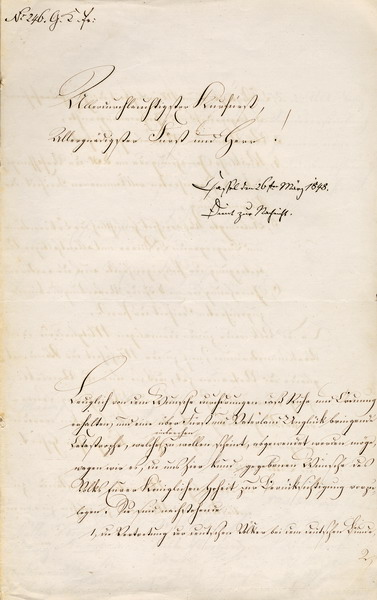 No 246. G. K. Pr.
Allerdurchlauchtigster Kurfürst,
Allergnädigster Fürst und Herr!
Cassel den 26ten März 1848.
Dient zur Nachricht.
Lediglich von dem Wunsche durchdrungen daß Ruhe und Ordnung
erhalten, und eine über Fürst und Vaterland Unglück bringende
Catastrophe, welche zu wollen scheint, abgewendet werden möge
wagen wir es, die uns zur Kund gegebenen Wünsche des
Volks Eurer Königlichen Hoheit zur Berücksichtigung vorzu
legen. Sie sind nachstehende
1, die Vertretung der deutschen Völker bei dem deutschen Bunde,
2,